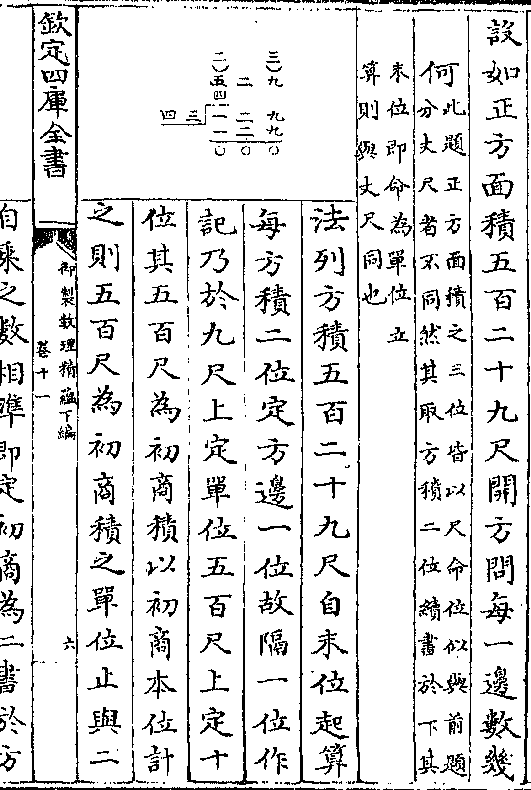 設如正方面積五百二十九尺開方問每一邊數幾
何
此題正方面積之三位皆以尺命位似與前題
分丈尺者不同然其取方積二位續書於下其
末位即命為單位立
算則與丈尺同也
二三
五二九
四
四三一二九
一二九
〇〇〇
法列方積五百二十九尺自末位起算
每方積二位定方邊一位故隔一位作
記乃於九尺上定單位五百尺上定十
位其五百尺為初商積以初商本位計
之則五百尺為初商積之單位止與二
欽定四庫全書
御製數理精蘊下編
卷十一
六
自乘之數相準即定初商為二書於方